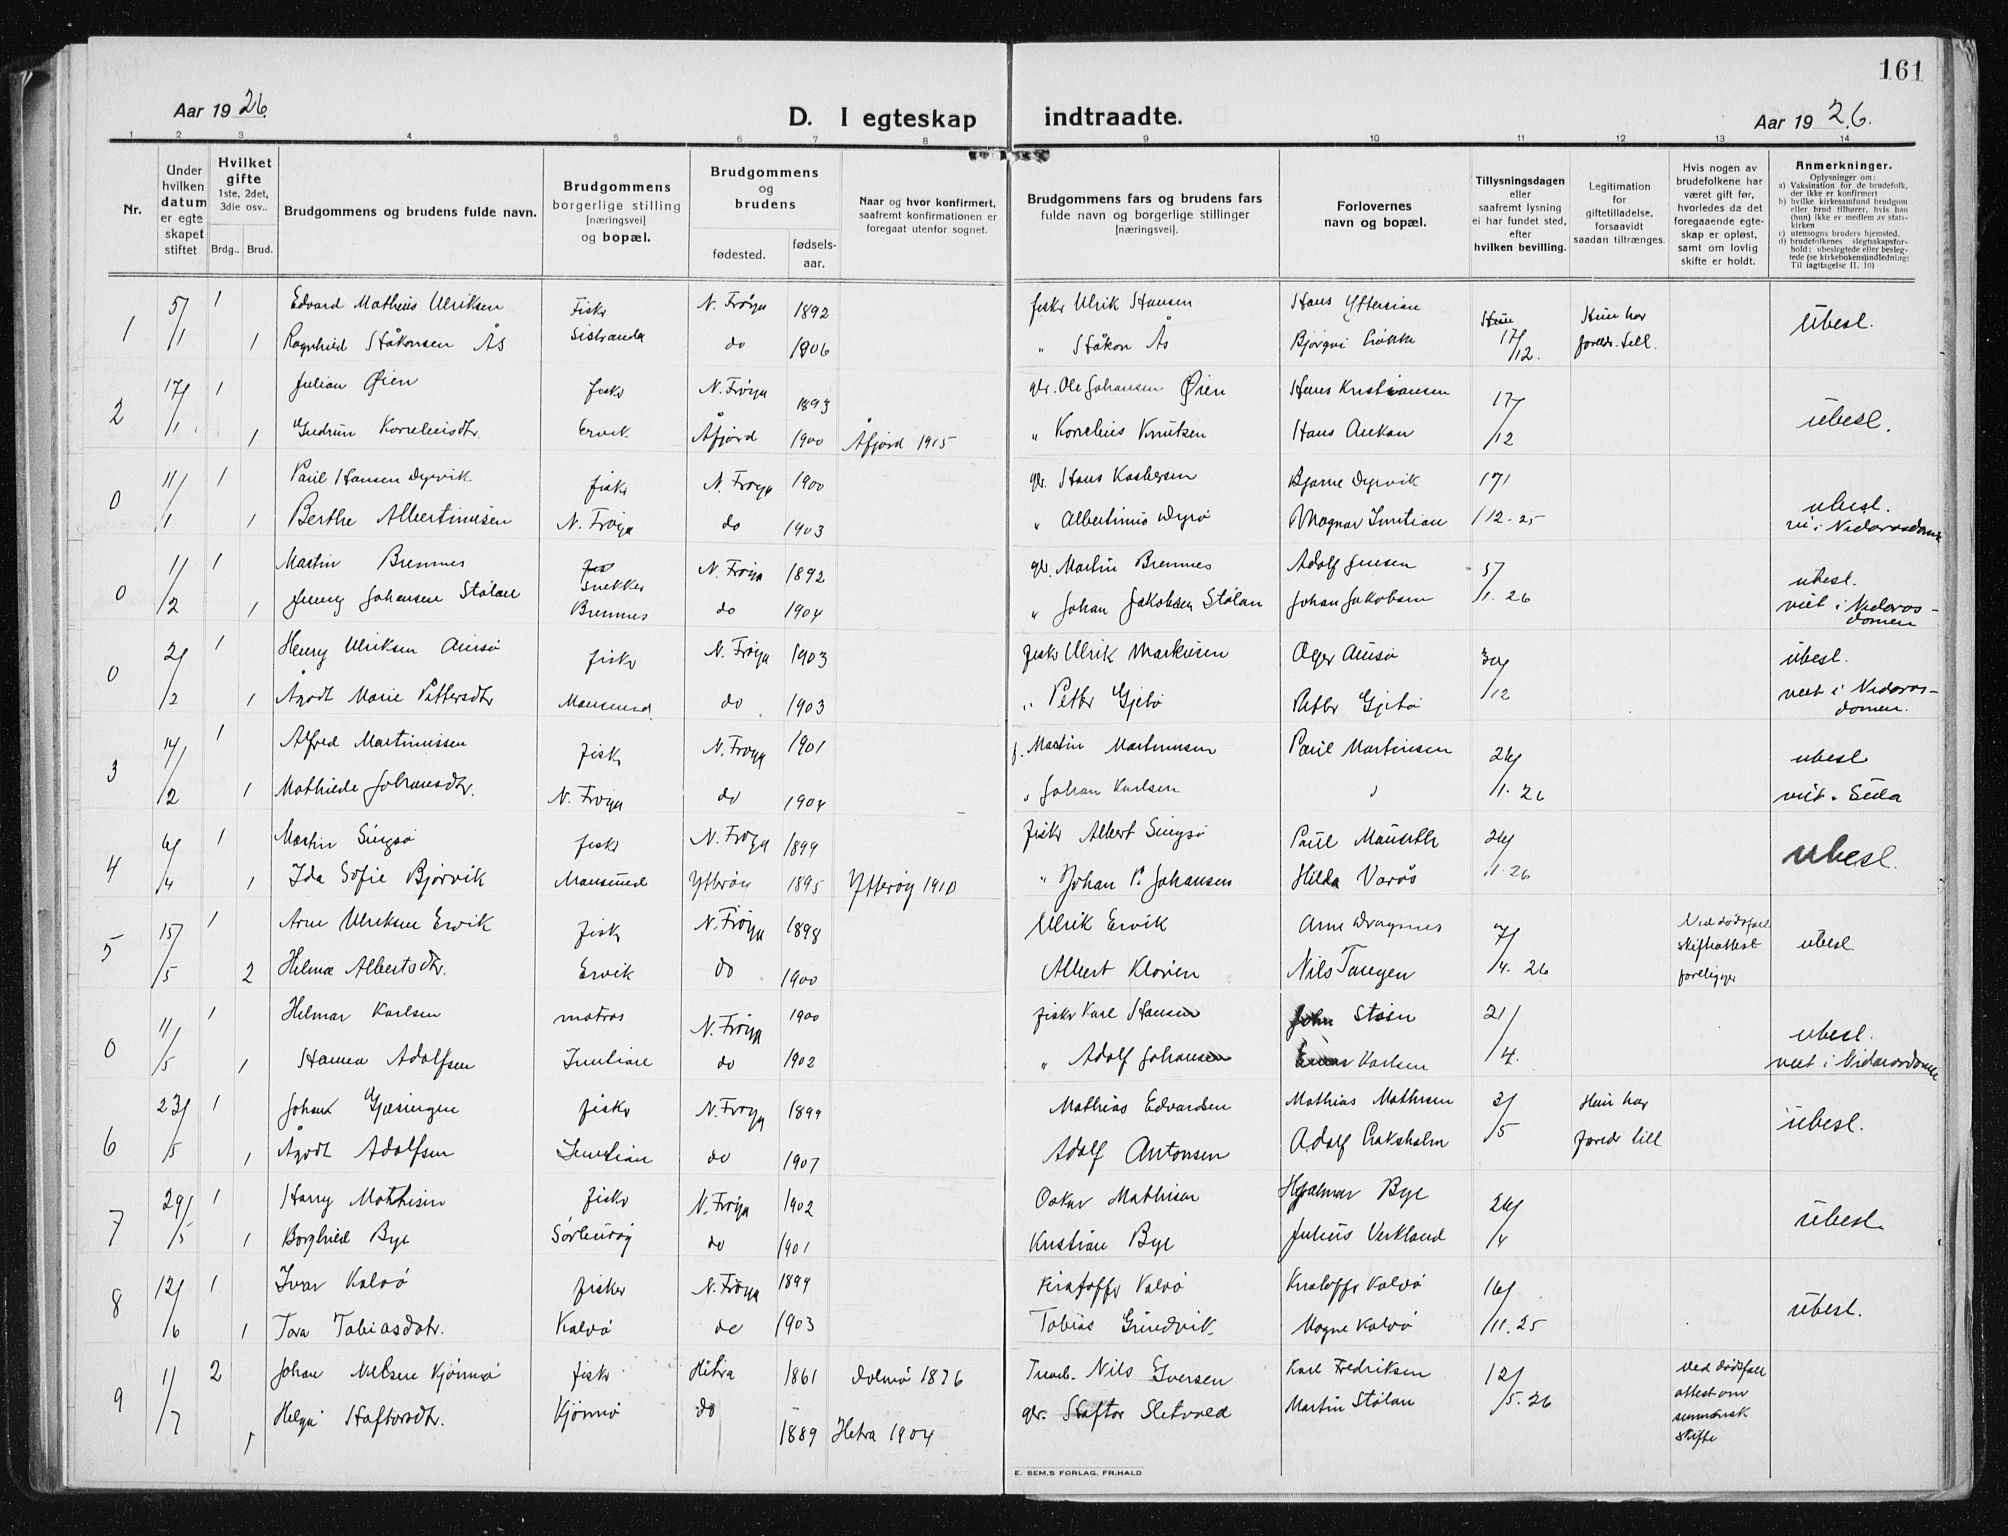 161
Aar 1926.
D. I egteskap indtraadte.
Aar 1926.
1 2 3 4 5 6 7 8 9 10 11 12 13 14
Nr.
Under hvilken datum er egteskapet stiftet
Hvilket gifte 1ste, 2det, 3die osv..
Brdg.. Brud.
Brudgommens og brudens fulde navn.
Brudgommens borgerlige stilling [næringsvei] og bopæl.
Brudgommens og brudens
fødested.
fødsels-aar.
Naar og hvor konfirmert, saafremt konfirmationen er foregaat utenfor sognet.
Brudgommens fars og brudens fars fulde navn og borgerlige stillinger [næringsvei].
Forlovernes navn og bopæl.
Tillysningsdagen eller saafremt lysning ei har fundet sted, efter hvilken bevilling.
Legitimation for giftetilladelse, forsaavidt saadan tiltrænges.
Hvis nogen av brudefolkene har været gift før, hvorledes da det foregaaende egteskap er opløst, samt om lovlig skifte er holdt.
Anmerkninger.
Oplysninger om:
a) Vaksination for de brudefolk, der ikke er konfirmert
b) hvilke kirkesamfund brudgom eller brud tilhører, hvis han (hun) ikke er medlem av statskirken
c) utensogns bruders hjemsted.
d) brudefolkenes slegtsskapsforhold; ubeslegtede eller beslegtede (se kirkebokensindledning: Til iagttagelse II. 10)
1 5/1 1 Edvard Mathius Ulriksen Fisker N. Frøya 1892 fisker Ulrik Hansen Hans Yttersian 17/12. Hun har ubesl.
1 Ragnhild Håkonsen Ås Sistranda do 1906 " Håkon Ås foreldr. till.
2 17/1 1 Julian Øien fisker N. Frøya 1893 gbr. Ole Johansen Øien Hans Kristiansen 17/12 ubesl.
1 Gudrun Korneliusdtr. Ervik Åfjord 1900 Åfjord 1915 " Kornelius Knutsen Hans Aukan
0 11/1 1 Paul Hansen Dyrvik fisker N. Frøya 1900 gbr. Hans Kasbersen Bjarne Dyrvik 17/12-25 ubesl.
1 Berthe Albertinusen N. Frøya do 1903 " Albertinus Dyrø Magnar Inntian vi i Nidarosdomen
0 1/2 1 Martin Bremnes Snekker N. Frøya 1892 gbr. Martin Bremnes Adolf Jensen 5/1. 26 ubesl.
1 Jenny Johansen Stølan Bremnes do 1904 " Johan Jakobsen Stølan Johan Jakobsen viet i Nidarosdomen
0 2/2 1 Henry Ulriksen Aursø fisker N. Frøya 1903 fisker Ulrik Markusen Aursø 30/12 ubesl.
1 Ågodt Marie Pettersdtr Mausund do 1903 " Petter Gjesø Petter Gjesø viet i Nidarosdomen.
3 14/2 1 Alfred Martinussen fisker N. Frøya 1901 f. Martin Martinusen Paul Martinsen 26/1. 26 ubesl
1 Mathilde Johansdtr. N. Frøya do 1904 " Johan Karlsen " viet. Sula
4 6/4 1 Martin Singsø fisker N. Frøya 1899 fisker Albert Singsø Paul 26/1.26 ubesl.
1 Ida Sofie Bjørvik Mausund Ytterøy 1895 Ytterøy 1910 " Johan P. Johansen Hilda Varøs
5 15/5 1 Arne Ulriksen Ervik fisker N. Frøya 1898 Ulrik Ervik Arne Dragsnes 7/4. 26 Ved dødsfall skifteattest foreligger ubesl.
2 Helma Albertsdtr. Ervik do 1900 Albert Kløvien Nils Tangen
0 11/5 1 Helmar Karlsen matros N. Frøya 1900 fisker Karl Hansen John Støen 21/4. ubesl.
1 Hanna Adolfsen Inntian do 1902 " Adolf Johansen Einar Karlsen viet i Nidarosdomen
6 23/5 1 Johan Gjæsingen fisker N. Frøya 1899 Mathias Edvardsen Mathias Mathisen 3/5 Hun har ubesl.
1 Ågodt Adolfsen Inntian do 1907 Adolf Antonsen Adolf foreldr till
7 29/5 1 Harry Mathisen fisker N. Frøya 1902 Oskar Mathisen Hjalmar Bye 26/4 ubesl.
1 Borghild Bye Sørburøy do 1901 Kristian Bye Julius Verkland
8 12/6 1 Ivar Kalvø fisker N. Frøya 1899 Kristoffer Kalvø Kristoffer Kalvø 16/11. 25 ubesl.
1 Tora Tobiasdatr. Kalvø do 1903 Tobias Grindvik Magne Kalvø
9 1/7 2 Johan Nilsen Kjønnø fisker Hitra 1861 Dolmø 1876 Nils Iversen Karl Fredriksen 12/5. 26 Ved dødsfall attest om summarisk skifte
1 Helga Haftorsdtr. Kjønnø do 1889 Hitra 1904 gbr. Haftor Sletvold Martin Stølan
E. SEM,S FORLAG, FR.HALD